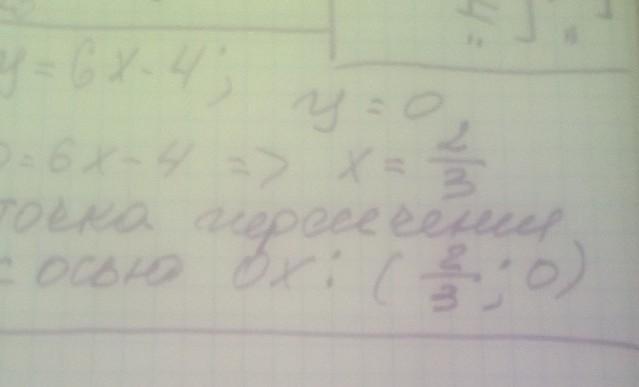 y = 6x - 4; y = 0
0 = 6x - 4 => x = 2/3
точка пересечения
с осью Ox: (2/3; 0)